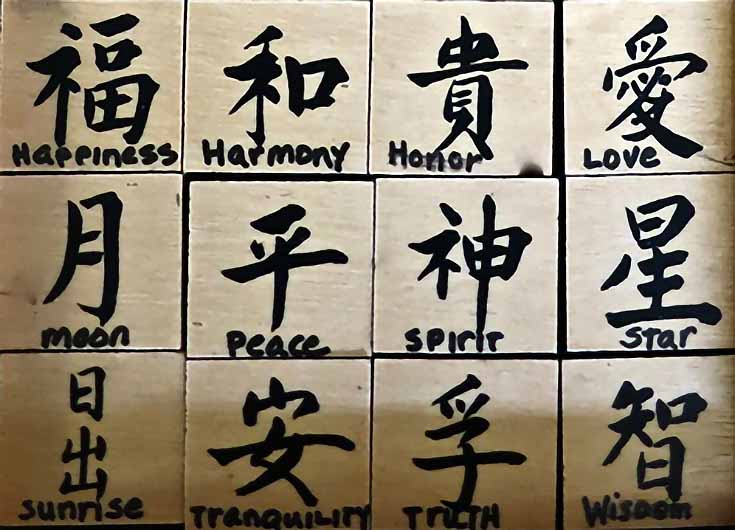 福 和 貴 愛
Happiness Harmony Honor Love
月 平 神 星
moon Peace Spirit Star
日出 安 孚 智
sunrise Tranquility Truth Wisdom